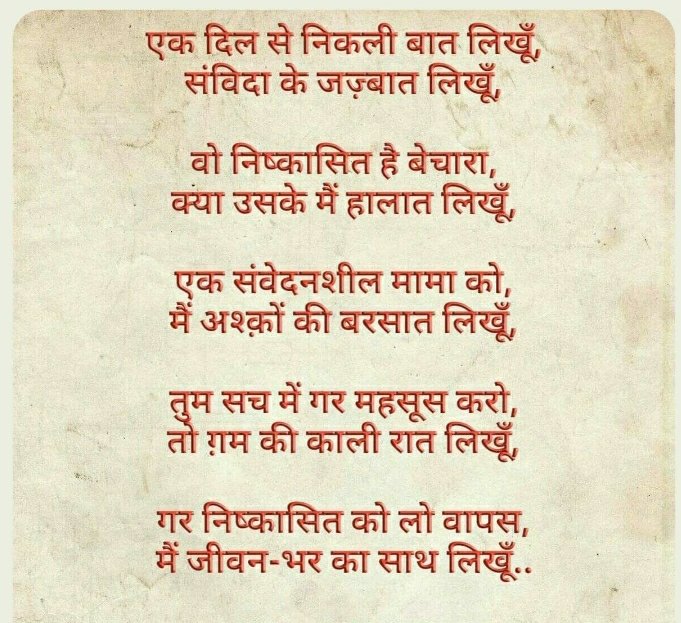 एक दिल से निकली बात लिखूँ,
संविदा के जज़्बात लिखूँ,
वो निष्कासित है बेचारा,
क्या उसके मैं हालात लिखूँ,
एक संवेदनशील मामा को,
मैं अश्क़ों की बरसात लिखूँ,
तुम सच में गर महसूस करो,
तो ग़म की काली रात लिखूँ,
गर निष्कासित को लो वापस,
मैं जीवन-भर का साथ लिखूँ..